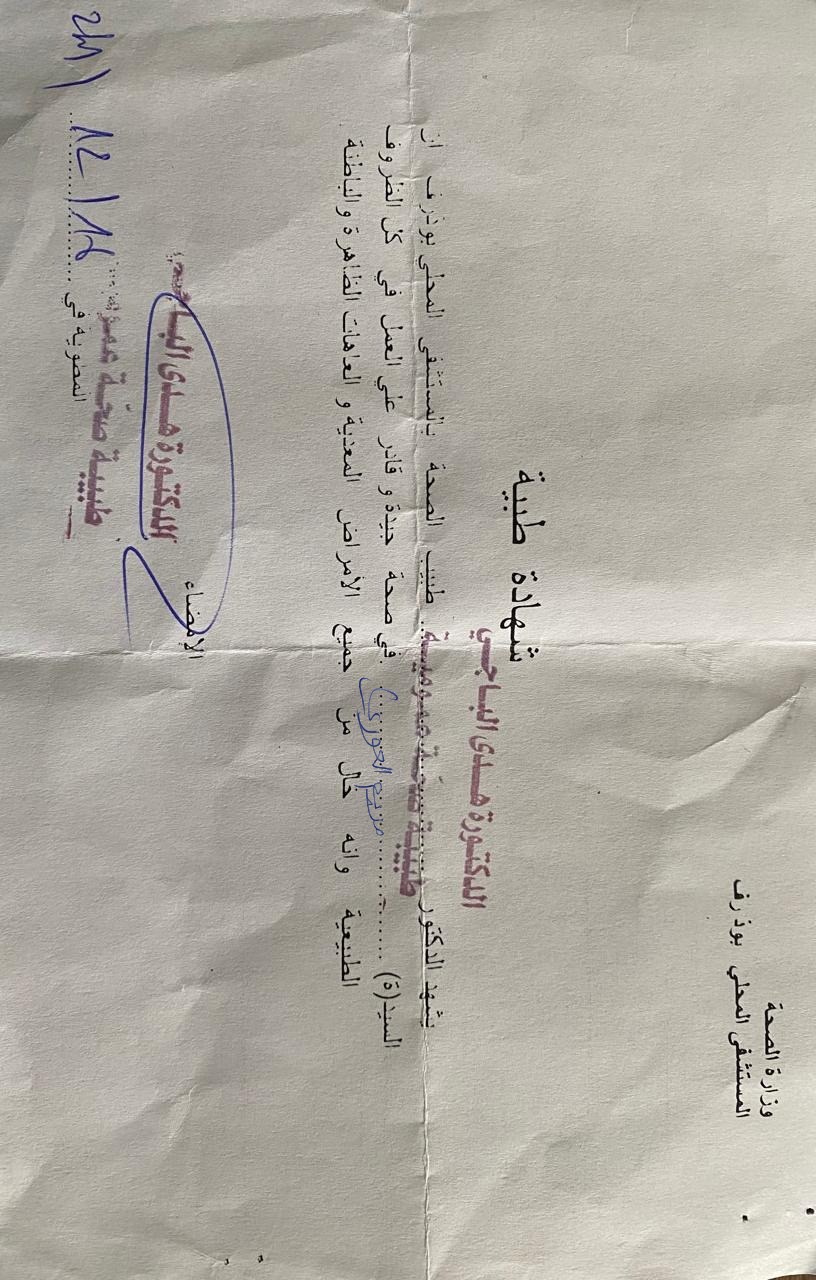 وزارة الصحة
المستشفى المحلي بوذرف
شهادة طبية
الدكتورة هدى الباجي
طبيبة صحة عمومية
يشهد الدكتور ........ طبيب الصحة بالمستشفى المحلي بوذرف ان
السيد(ة) ........ مريم ........ في صحة جيدة و قادر علي العمل في كل الظروف
الطبيعية وانه خال من جميع الأمراض المعدية و العاهات الظاهرة والباطنة
الإمضاء
الدكتورة هدى الباجي
طبيبة صحة عمومية
المطوية في